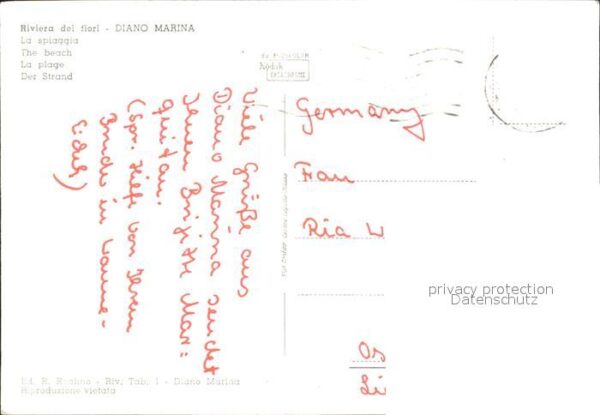 Riviera dei fiori - DIANO MARINA
La spiaggia
The beach
La plage
Der Strand
Kodak
Viele Grüße aus
Diano Marina sendet
Ihnen Brigitte Mar=
(spr. Hilfe von Ihrem
Germany
Frau
Ria W
privacy protection
Datenschutz
Os
Li
Ed. R. - Riv. Tab. 1 - Diano Marina
Riproduzione vietata